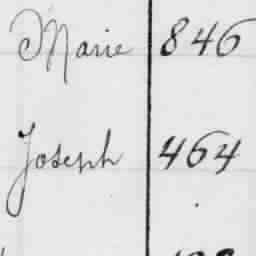 Marie 846
Joseph 464